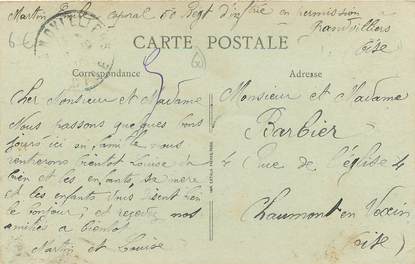 Martin Emile caporal 50 Regt d'inf^rie en permission a
Grandvilliers
Oise
CARTE POSTALE
Correspondance
Adresse
Cher Monsieur et Madame
Nous passons quelques bons
jours ici en famille nous
rentrerons bientot Louise va
bien et les enfants, sa mere
et les enfants vous disent bien
le bonjour, et recevez nos
amitiés a bientot
Martin et Louise
Monsieur et Madame
Barbier
4 Rue de l'église 4
Chaumont en Vexin
Oise